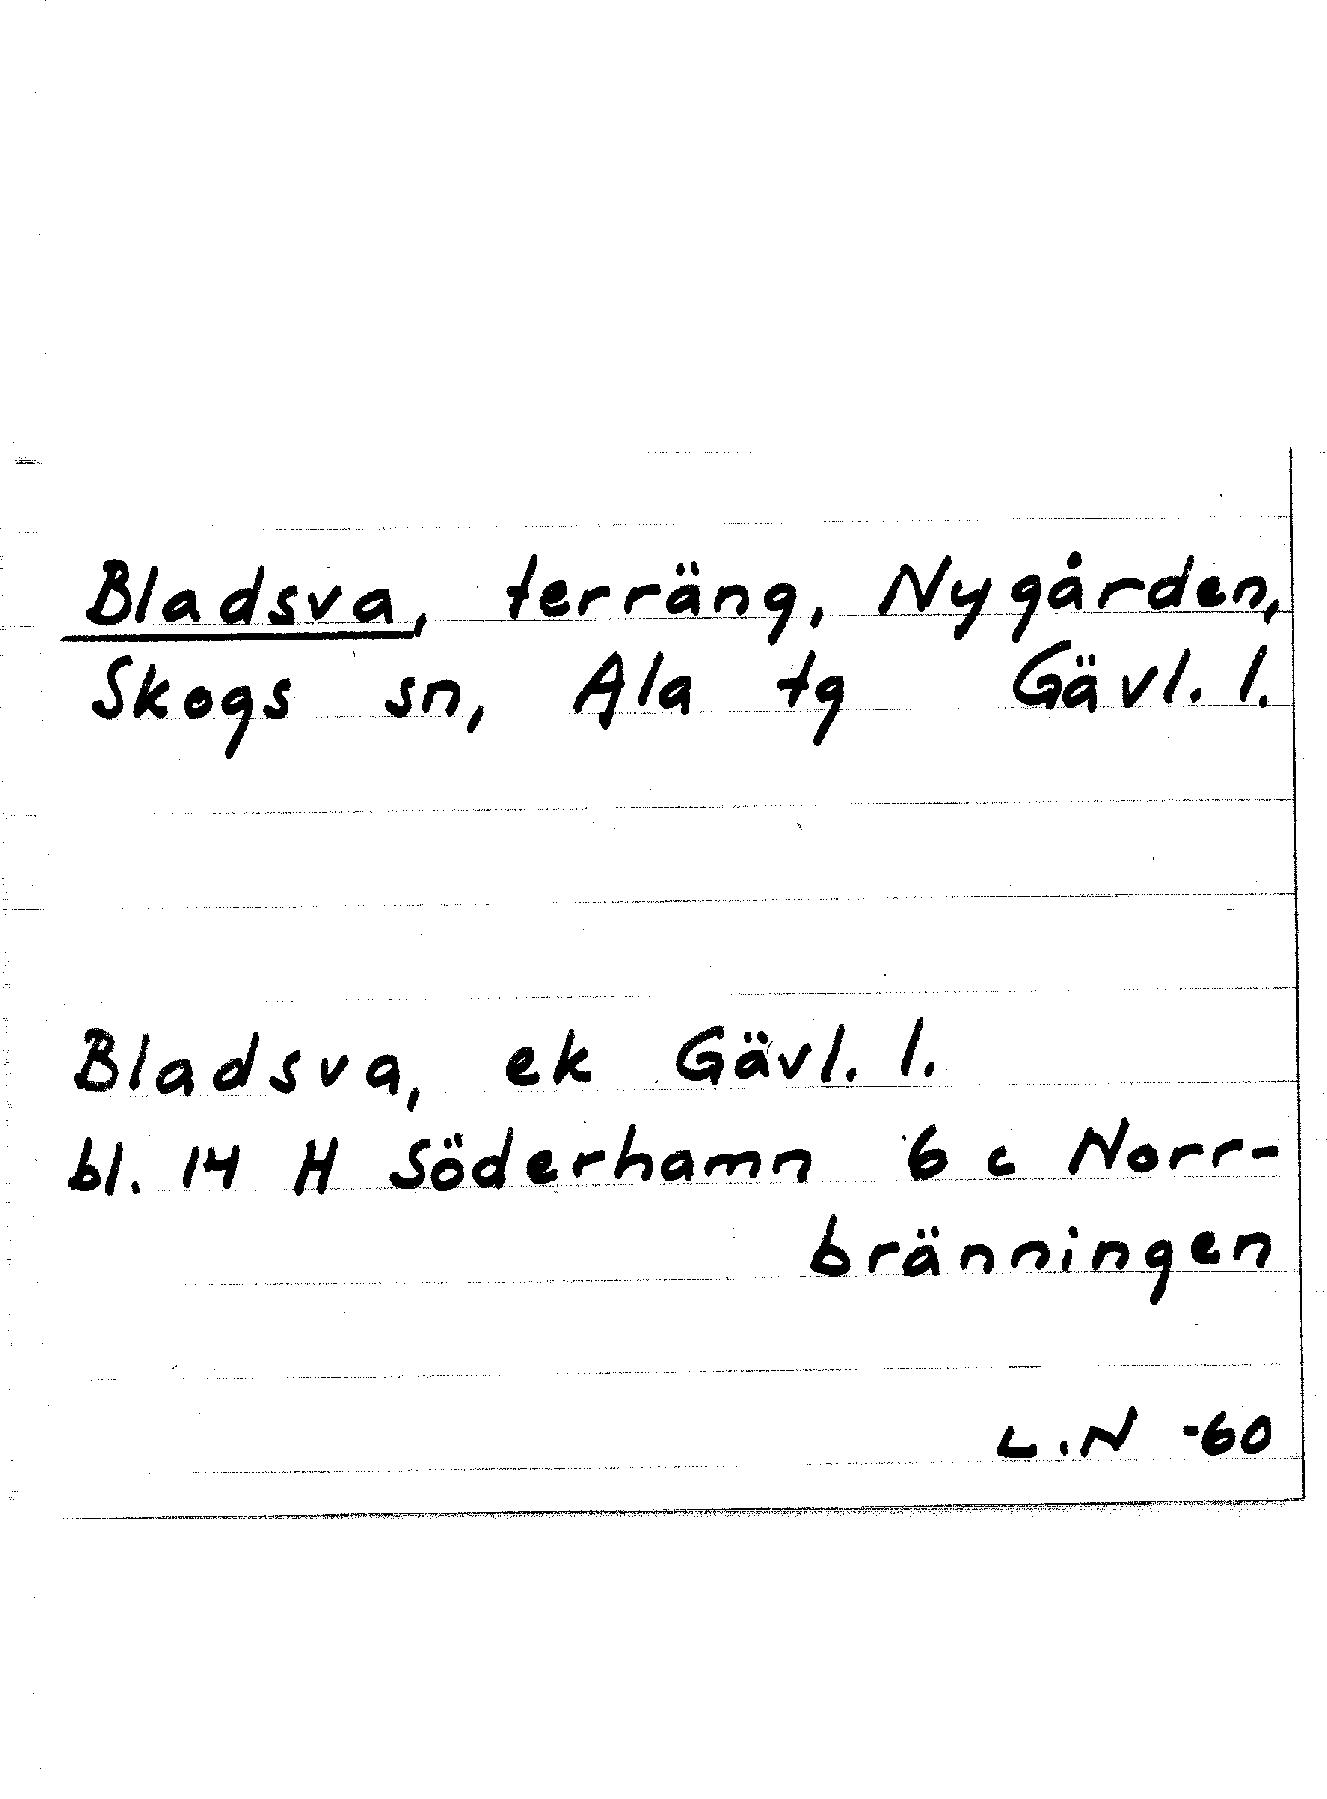 Bladsva, terräng, Nygården,
Skogs sn, Ala tg Gävl. l.
Bladsva, ek Gävl. l.
bl. 14 H Söderhamn 6 c Norr-
bränningen
L.N -60